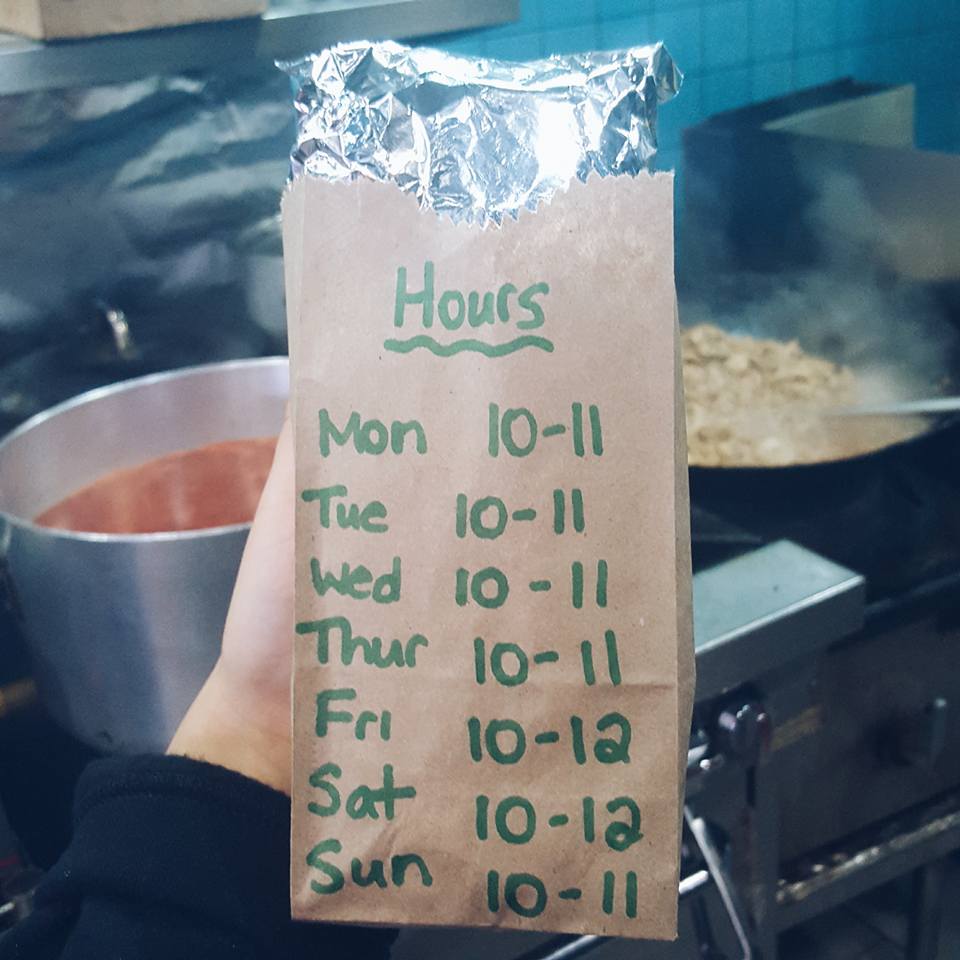 Hours
Mon 10-11
Tue 10-11
Wed 10-11
Thur 10-11
Fri 10-12
Sat 10-12
Sun 10-11